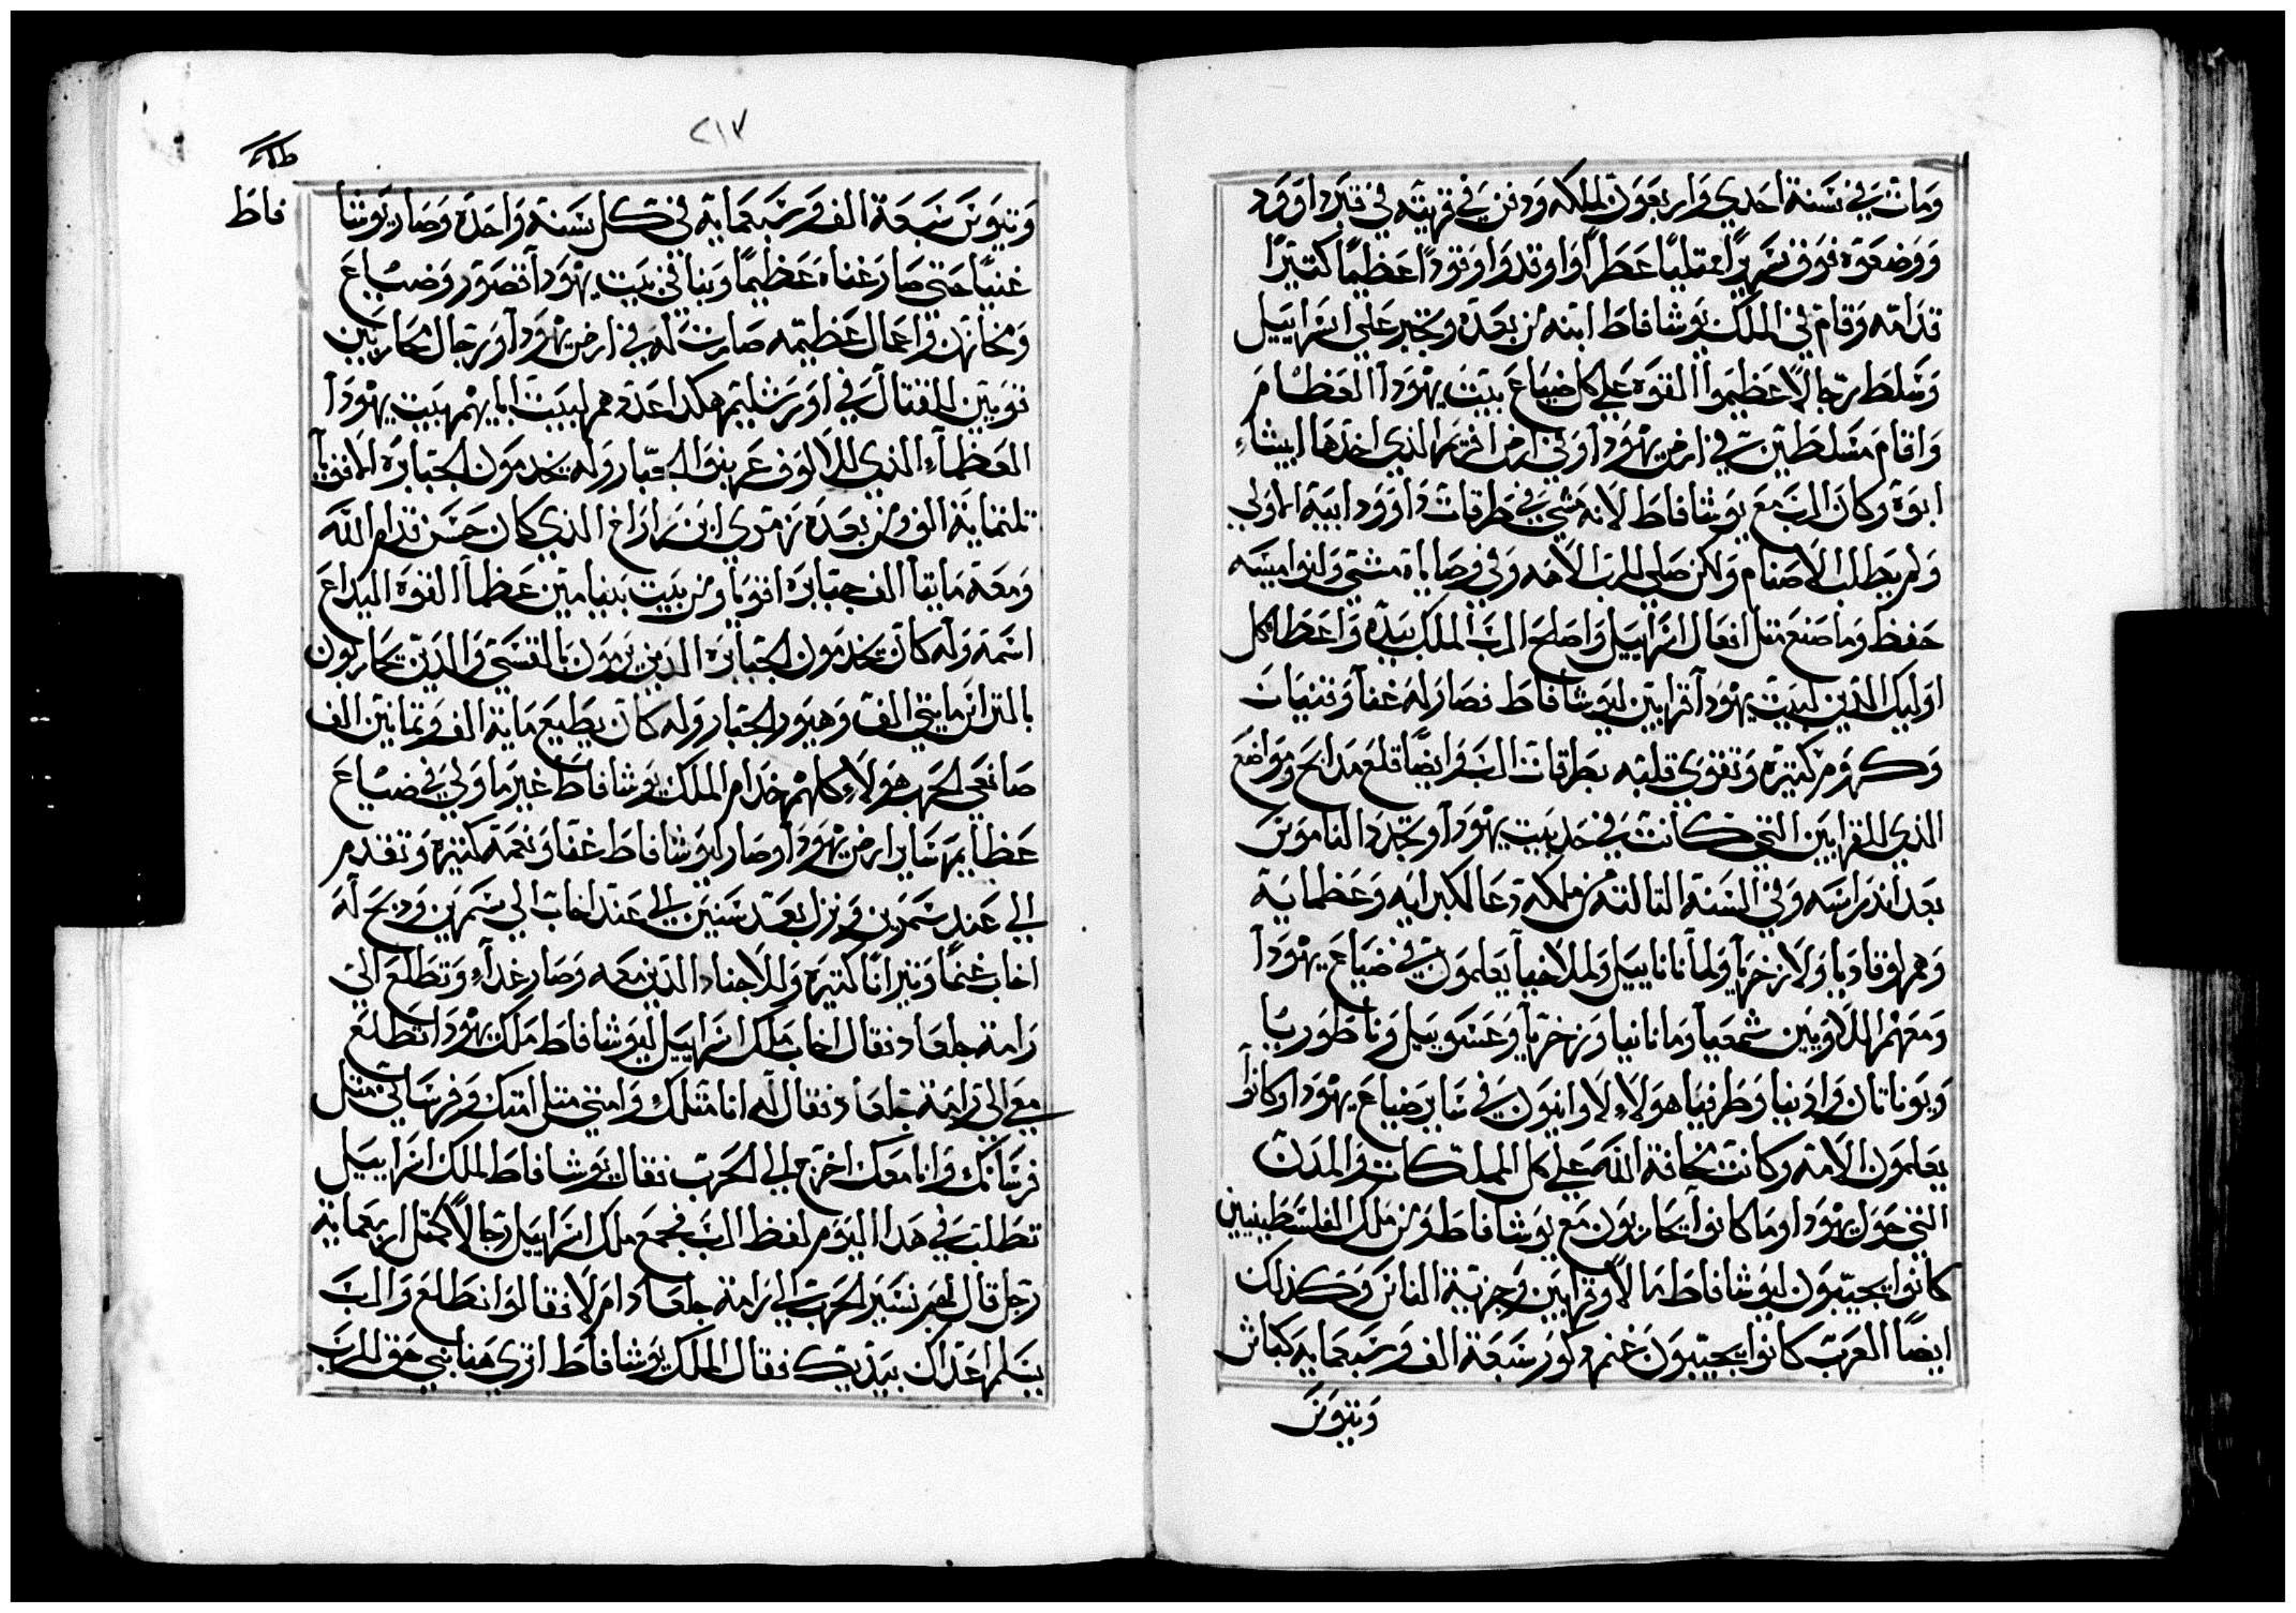 ومات في سنة احدي واربعون لملكه ودفن في قريته في قبر داوود
ووضعوه فوق سريرًا ممتليًا عطرًا واوقدوا وقودًا عظيمًا كتيرًا
قدامه وقام في الملك يوشافاط ابنه من بعده وتجبر علي اسراييل
وسلط رجالًا عظيموا القوه علي كل ضياع بيت يهودا العظام
واقام مسلطين في ارض يهودا وفي ارض افريم الذي اخدها ايشاء
ابوه وكان الرب مع يوشافاط لانه مشي في طرقات داوود ابيه الاولي
ولم يطلب الاصنام ولكن صلي للرب الاهه وفي وصاياه مشي ونواميسه
حفظ وما صنع متل افعال اسراييل واصلح الرب الملك بيده واعطا كل
اوليك الذين لبيت يهودا قرابين ليوشافاط فصار له غنا وقنيات
وكروم كتيره وتقوي قلبه بطرقات الرب وايضًا قلع مدابح ومواضع
الذي للقرابين التي كانت في حد بيت يهودا وتجدد الناموس
بعد اندراسه وفي السنة التالته من ملكه دعا لكبرايه وعظمايه
وهم لوقاديا ولازخريا ولما نانا ييل ولملاخيا يعلمون في ضياع يهودا
ومعهم اللاويين شمعيا ومانانيا وزخريا وعسوييل وناطوريا
ويوناتان وادنيا وطرفيا هولاء لاوانيون في ساير ضياع يهودا وكانوا
يعلمون الامه وكانت مخافة الله علي كل المملكات والمدن
التي حول يهودا وما كانوا يحاربون مع يوشافاط ومن ملك الفلسطينيين
كانوا يجيبون ليوشافاط مالًا وقرابين وجزية الناس وكذلك
ايضًا العرب كانوا يجيبون غنم دكور سبعة الف وسبعمايه كباش
وتيوس
٢١٧
وتيوس سبعة الف وسبعمايه في كل سنة واحده وصار يوشا
فاط
غنيًا حتي صار غناه عظيمًا وبنا في بيت يهودا قصور وضياع
ومخازن واعمال عظيمه صارت له في ارض يهودا ورجال محاربين
قويين للقتال في اورشليم هكدا عددهم لبيت ابايهم بيت يهودا
العظماء الذي للالوف عربنوا الجبار وله يخدمون الجبابره الاقويا
تلتماية الف ومن بعده زمري ابن زاراخ الذي كان حسن قدام الله
ومعه مايتا الف جبابره اقويا ومن بيت بنيامين عظما القوه اليداع
اسمه وله كان يخدمون الجبابره الدين يرمون بالقسي والدين يحاربون
بالتراس مايتي الف وهيور الجبار وله كان يطيع ماية الف وتمانين الف
صانعي الحرب هولاء كلهم خدام الملك يوشافاط غير ما ولي في ضياع
عظايم ساير ارض يهودا وصار ليوشافاط غنا ونعمه كتيره وتقدم
الي عند سمرين ونزل بعد سنين الي عند اخاب الي سمرين ودبح له
اخاب غنمًا وتيرانًا كتيره وللاجناد الدين معه وصار غداء وتطلع الي
رامة جلعاد فقال اخاب ملك اسراييل ليوشافاط ملك يهودا تطلع
معي الي رامة جلعاد فقال له انا متلك وامتي متل امتك وفرساني متل
فرسانك وانا معك اخرج الي الحرب فقال يوشافاط لملك اسراييل
تطلب في هدا اليوم لفظ الرب فجمع ملك اسراييل رجالًا كمتل اربعماية
رجل قال لهم نسير الحرب الي رامة جلعاد ام لا فقالوا نطلع والرب
يسلم اعداك بيديك فقال الملك يوشافاط اتري هنا نبي حق للرب